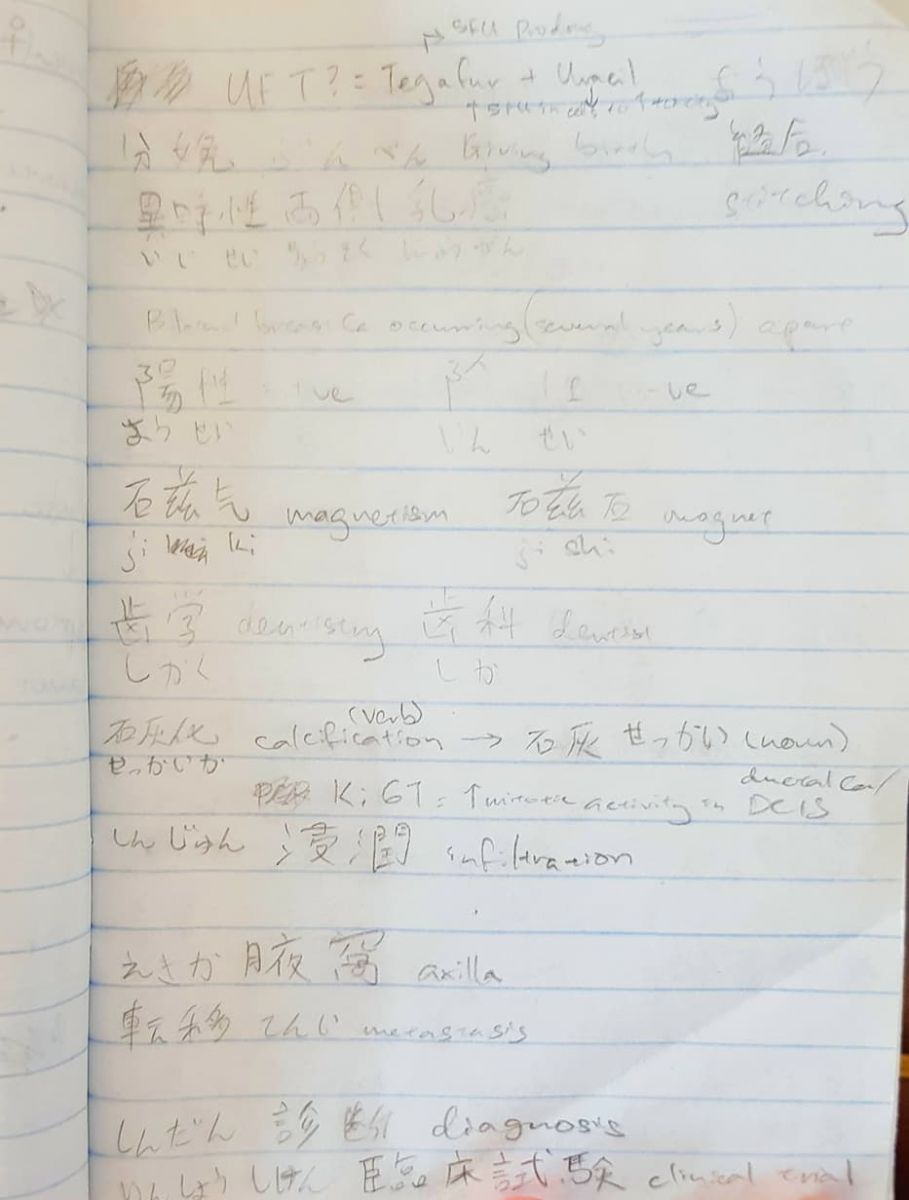 5FU Prodrug
UFT? = Tegafur + Uracil ようほう
↑5FU in
分娩 ぶんべん Giving birth
異時性両側乳癌 stitching
いじ せい りょうそく にゅうがん
Bilateral breast Ca occurring (several years) apart
陽性 +ve 陰性 -ve
ようせい いんせい
磁気 magnetism 磁石 magnet
ji ki ji shi
歯学 dentistry 歯科 dentist
しがく しか
石灰化 calcification (verb) → 石灰 せっかい (noun)
せっかいか
Ki 67 = ↑ mitotic activity in ductal Ca/ DCIS
しんじゅん 浸潤 infiltration
えきか 腋窩 axilla
転移 てんい metastasis
しんだん 診断 diagnosis
りんしょう しけん 臨床試験 clinical trial